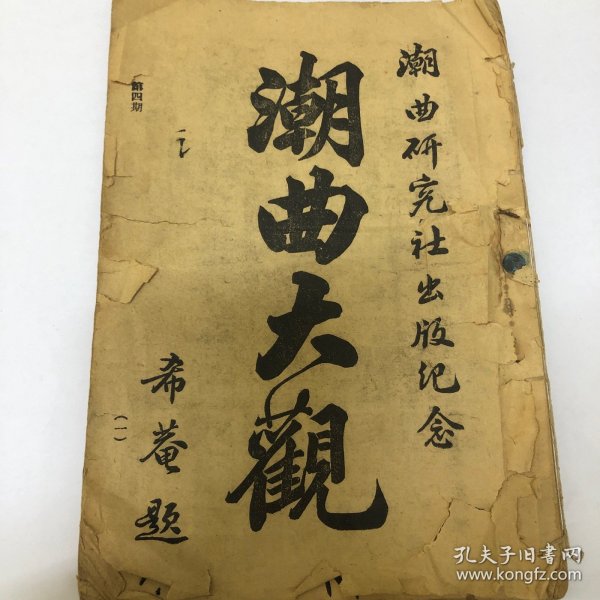 潮曲研究社出版纪念
潮曲大觀
希菴题
(一)
第四期
孔夫子旧書网
www.kongfz.com